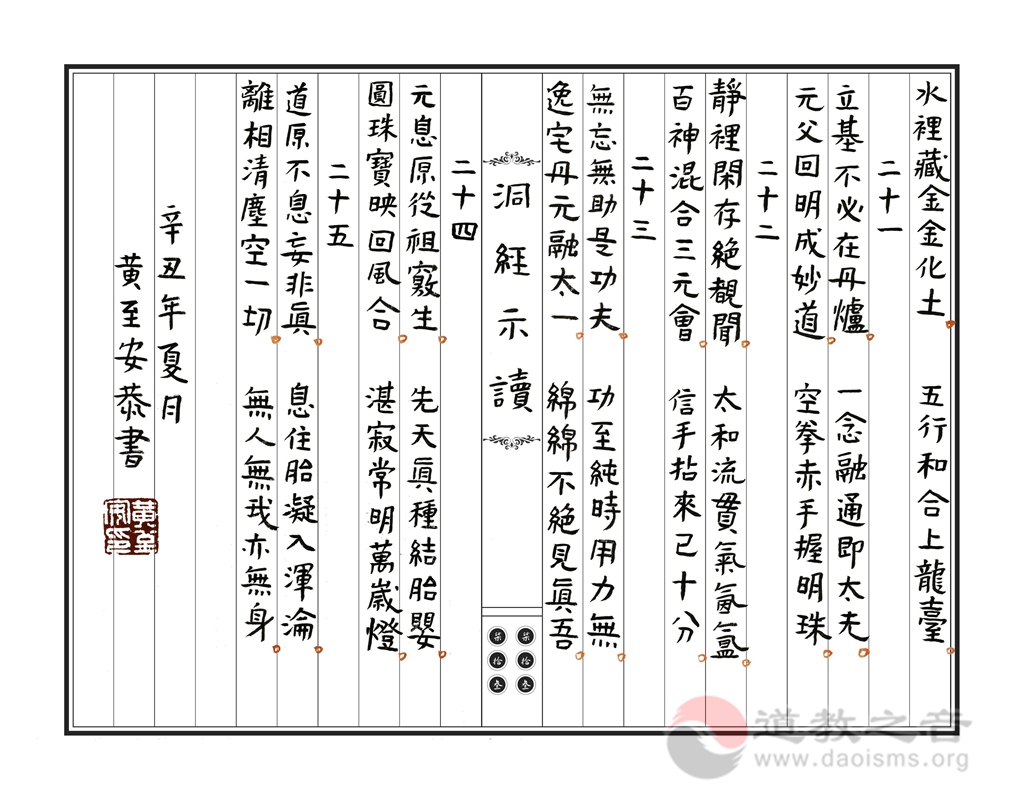 水裡藏金金化土　五行和合上龍臺
二十一
立基不必在丹爐　一念融通即太无
元父回明成妙道　空拳赤手握明珠
二十二
靜裡閑存絕覩聞　太和流貫氣氤氳
百神混合三元會　信手拈來已十分
二十三
無忘無助是功夫　功至純時用力無
逸宅丹元融太一　綿綿不絕見眞吾
洞經示讀
柒拾叁
柒拾叁
二十四
元息原從祖竅生　先天眞種結胎嬰
圓珠寶映回風合　湛寂常明萬歲燈
二十五
道原不息妄非眞　息住胎凝入渾淪
離相清塵空一切　無人無我亦無身
辛丑年夏月
黃至安恭書
道教之音
www.daoisms.org